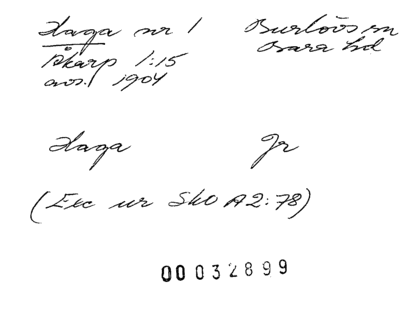 Haga nr 1 Burlövs sn
Åkarp 1:15 Bara hd
avs. 1904
Haga Gr
(Exc ur SkO A2:78)
00032899